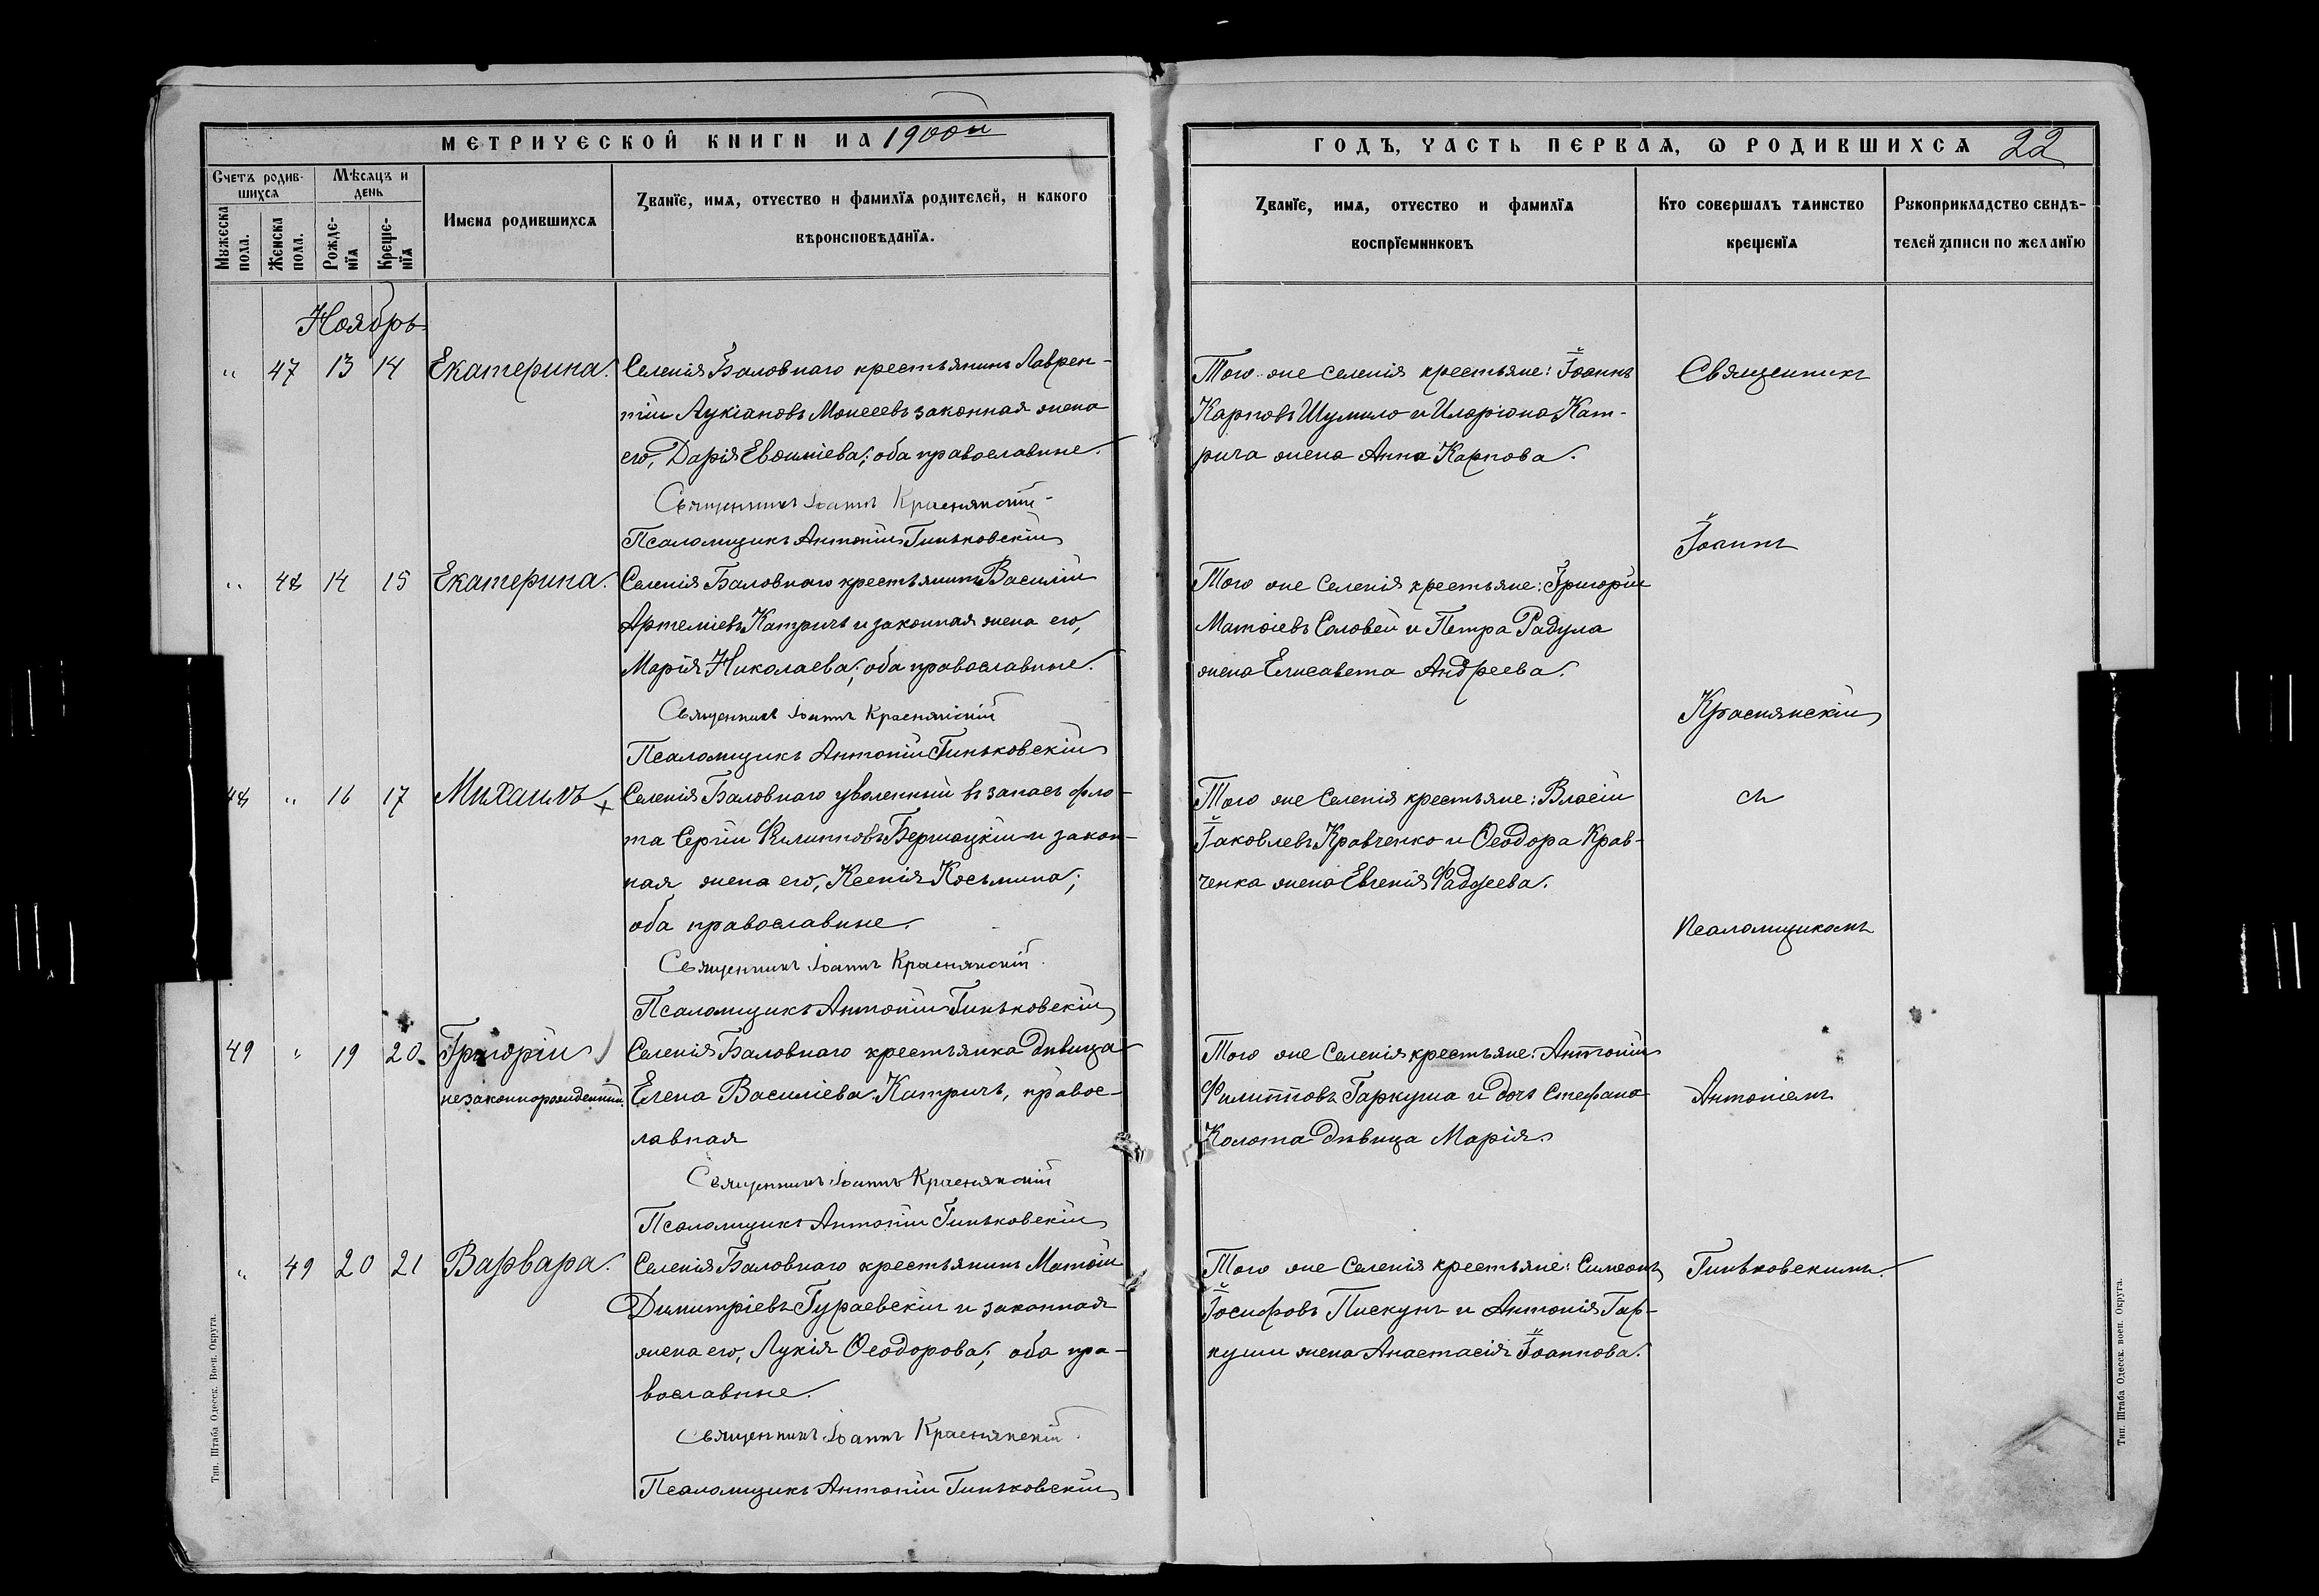 МЕТРИЧЕСКОЙ КНИГИ НА 1900й
Счетъ родив-
шихся
Мѣсяцъ и
день
Мужеска
пола.
Женска
пола.
Рожде-
нїя
Креще-
нїя
Имена родившихся
Званїе, имя, отчество и фамилїя родителей, и какого
вѣроисповѣданїя.
Ноябрь
" 47 13 14 Екатерина. Селенія Баловнаго крестьянинъ Лаврен-
тій Лукіановъ Моисеевъ законная жена
его, Дарія Евѳиміева; оба православные.
Священникъ Іоаннъ Краснянскій
Псаломщикъ Антоній Гиньковскій
" 48 14 15 Екатерина. Селенія Баловнаго крестьянинъ Василій
Артеміевъ Катричъ и законная жена его,
Марія Николаева; оба православные.
Священникъ Іоаннъ Краснянскій
Псаломщикъ Антоній Гиньковскій
48 " 16 17 Михаилъ + Селенія Баловнаго уволенный въ запасъ фло-
та Сергій Филипповъ и закон-
ная жена его, Ксенія Косьмина;
оба православные.
Священникъ Іоаннъ Краснянскій.
Псаломщикъ Антоній Гиньковскій
49 " 19 20 Григорій Селенія Баловнаго крестьянка дѣвица
незаконнорожденный. Елена Василіева Катричъ, правос-
лавная
Священникъ Іоаннъ Краснянскій
Псаломщикъ Антоній Гиньковскій
" 49 20 21 Варвара. Селенія Баловнаго крестьянинъ Матѳій
Димитріевъ Гураевскій и законная
жена его, Лукія Ѳеодорова; оба пра-
вославные.
Священникъ Іоаннъ Краснянскій.
Псаломщикъ Антоній Гиньковскій
Тип. Штаба Одесск. Воен. Округа.
ГОДЪ, ЧАСТЬ ПЕРВАЯ, Ѡ РОДИВШИХСЯ 22
Званїе, имя, отчество и фамилїя
воспрїемниковъ
Кто совершалъ таинство
крещенїя
Рукоприкладство свидѣ-
телей записи по желанїю
Того же селенія крестьяне: Іоаннъ
Карповъ Шумило и Иларіона Кат-
рича жена Анна Карпова.
Того же селенія крестьяне: Григорій
Матѳіевъ Соловей и Петра Радула
жена Елисавета Андреева.
Того же селенія крестьяне: Власій
Іаковлевъ Кравченко и Ѳеодора Крав-
ченка жена Евгенія Фаддеева.
Того же селенія крестьяне: Антоній
Филипповъ Гаркуша и дочь Стефана
Колота дѣвица Марія.
Того же селенія крестьяне: Симеонъ
Іосифовъ Пискунъ и Антонія Гар-
куши жена Анастасія Іоаннова.
Священникъ
Іоаннъ
Краснянскій
съ
псаломщикомъ
Антоніемъ
Гиньковскимъ.
Тип. Штаба Одесск. воен. Округа.